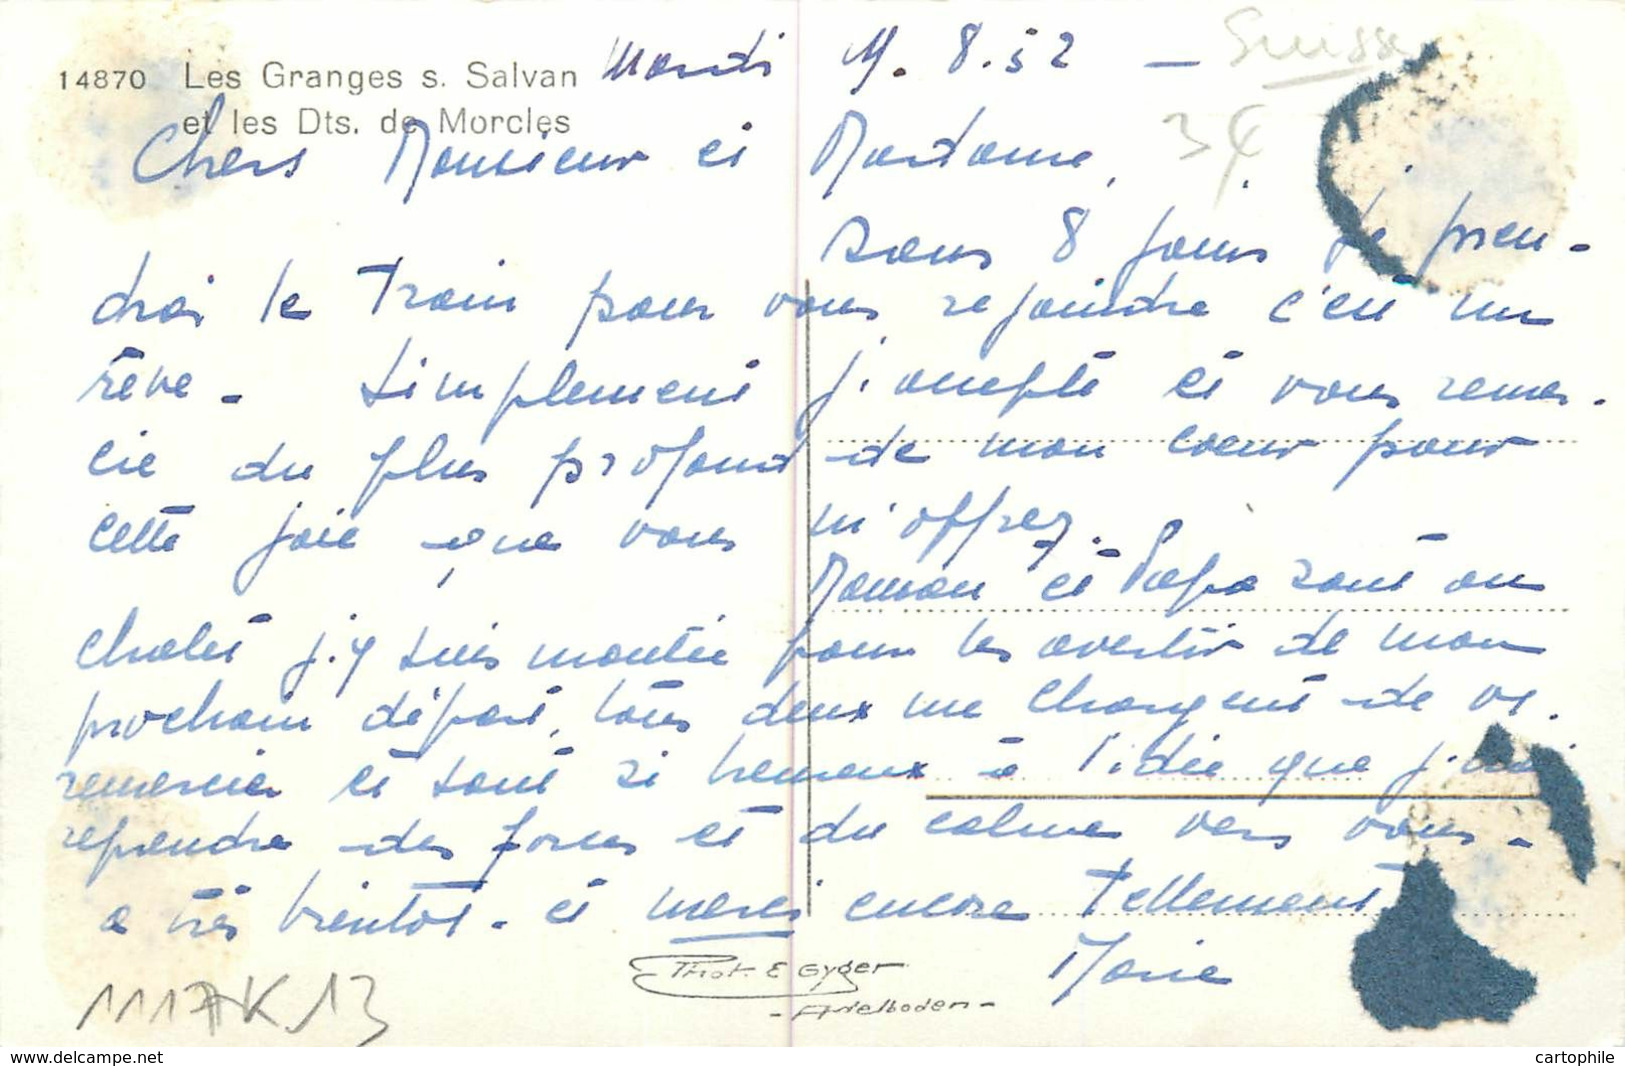 14870 Les Granges s. Salvan
et les Dts. de Morcles
Mardi 19. 8. 52 — Suisse
Chers Monsieur et Madame, 34
Dans 8 jours je pren-
drai le train pour vous rejoindre c'est un
rêve - simplement j'accepte et vous remer-
cie du plus profond de mon coeur pour
cette joie que vous m'offrez.
Maman et Papa sont au
chalet j'y suis montée pour les avertir de mon
prochain départ, tous deux me chargent de vs.
remercier et sont si heureux à l'idée que j'ai
reprendre des forces et du calme vers vous -
a très bientôt - et merci encore tellement
Marie
Phot. E Gyger
- Adelboden -
1117AK13
www.delcampe.net
cartophile